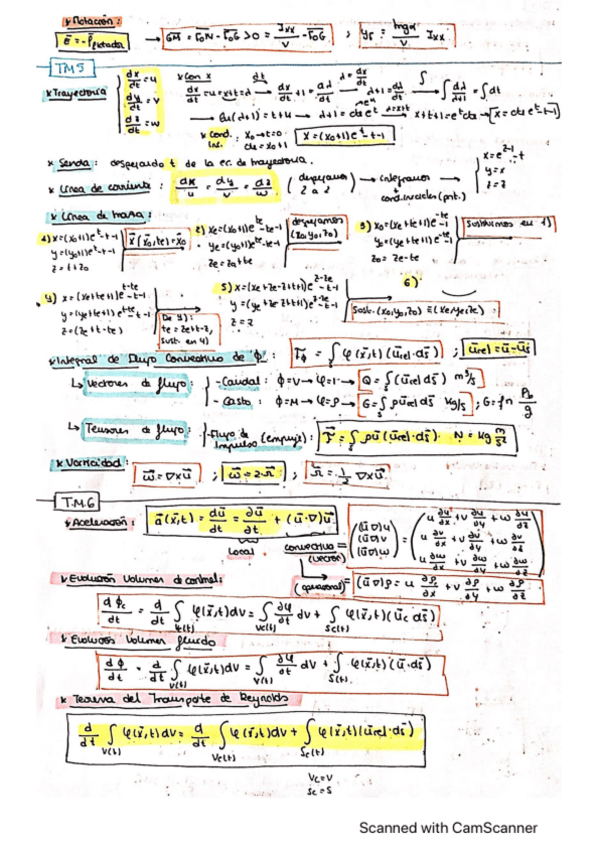 * Flotación:
E = -P flotador → GM = r̄₀N - r̄₀G > 0 = Ixx/V - r̄₀G ; yr = / Ixx
T.M.5
* Trayectoria { dx/dt = u ; dy/dt = v ; dz/dt = w
* Con x dx/dt = u = x+t = λ → dx/dt + 1 = dλ/dt → λ+1 = dλ/dt → ∫ dλ/(λ+1) = ∫ dt
→ Ln(λ+1) = t + → λ+1 = cte e^t → x+t+1 = e^t cte → x = cte e^t - t - 1
* Cond. Inc. x₀ → t=0 cte = x₀+1 x = (x₀+1)e^t - t - 1
* Senda: despejando t de la ec. de trayectoria.
* Línea de corriente: dx/u = dy/v = dz/w (despejamos 2 a 2) → integramos + cond. iniciales (pnt.) { y = x z = z
* Línea de traza:
1) x = (x₀+1)e^t - t - 1 y = (y₀+1)e^t - t - 1 z = t + z₀
x̄(x̄₀,te) = x̄₀
2) xe = (x₀+1)e^te - te - 1 ye = (y₀+1)e^te - te - 1 ze = z₀ + te
despejamos (x₀,y₀,z₀)
3) x₀ = (xe+te+1)e^-te - 1 y₀ = (ye+te+1)e^-te - 1 z₀ = ze - te
Sustituimos en 1)
4) x = (xe+te+1)e^t-te - t - 1 y = (ye+te+1)e^t-te - t - 1 z = (ze+t-te)
De 4): te = ze+t-z, sust. en 4)
5) x = (xe+ze-z+t+1)e^z-ze - t - 1 y = (ye+ze-z+t+1)e^z-ze - t - 1 z = z
6) Sust. (x₀,y₀,z₀) ≡ (xe,ye,ze)
* Integral de Flujo Convectivo de Φ: Γφ = ∫s φ(x̄,t)(ūrel·ds̄) ; ūrel = ū - ūs
↳ Vectores de flujo: { - Caudal: Φ=V → φ=1 → Q = ∫s (ūrel ds̄) m³/s
- Gasto: Φ=M → φ=ρ → G = ∫s ρ ūrel ds̄ kg/s ;
↳ Tensores de flujo: { - Flujo de Impulsos (empuje): = ∫s ρū (ūrel·ds̄) N = kg m/s²
* Vorticidad: w̄ = ∇×ū ; w̄ = 2·Ω̄ ; Ω̄ = 1/2 ∇×ū
T.M.6
* Aceleración: ā(x̄,t) = dū/dt = ∂ū/∂t + (ū·∇)ū
Local convectiva = (vector)
(ū∇)u (ū∇)v (ū∇)w = ( u ∂u/∂x + v ∂u/∂y + w ∂u/∂z ; u ∂v/∂x + v ∂v/∂y + w ∂v/∂z ; u ∂w/∂x + v ∂w/∂y + w ∂w/∂z )
→ = (ū∇)ρ = u ∂ρ/∂x + v ∂ρ/∂y + w ∂ρ/∂z
* Evolución Volumen de control:
dΦc/dt = d/dt ∫Vc(t) φ(x̄,t)dv = ∫Vc(t) ∂φ/∂t dv + ∫Sc(t) φ(x̄,t)(ūc ds̄)
* Evolución Volumen fluido
dΦ/dt = d/dt ∫V(t) φ(x̄,t)dv = ∫V(t) ∂φ/∂t dv + ∫S(t) φ(x̄,t)(ū·ds̄)
* Teorema del Transporte de Reynolds
d/dt ∫V(t) φ(x̄,t)dv = d/dt ∫Vc(t) φ(x̄,t)dv + ∫Sc(t) φ(x̄,t)(ūrel·ds̄)
Vc = V
Sc = S
Scanned with CamScanner